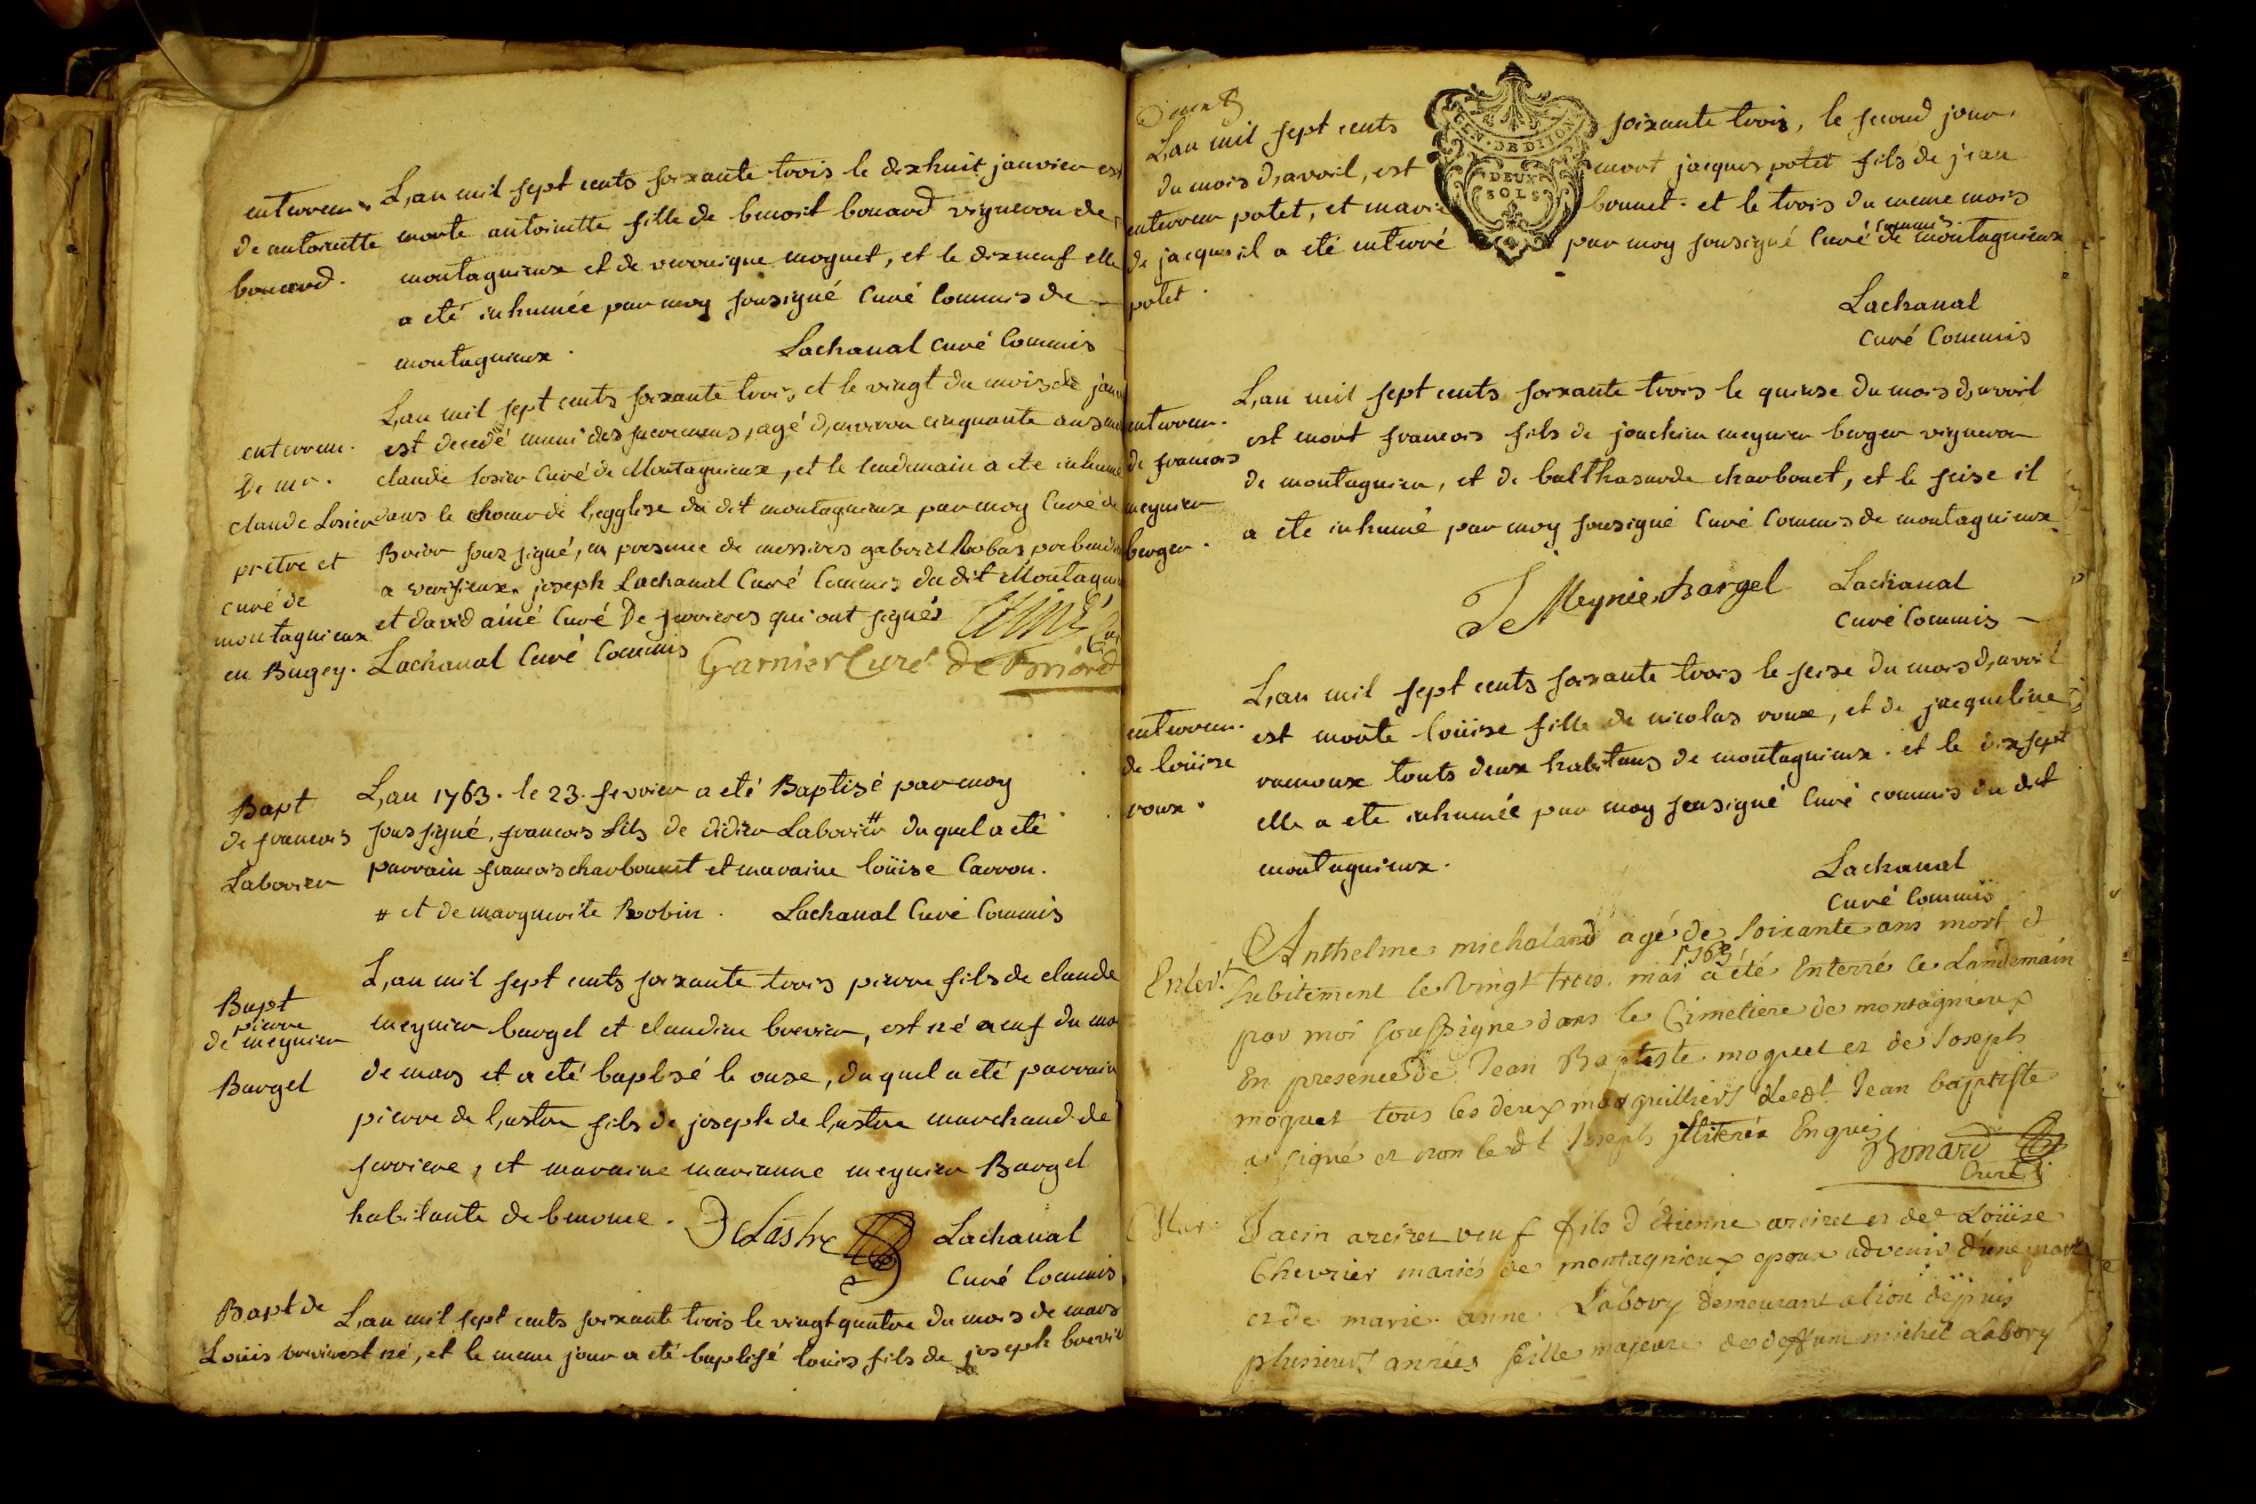 L,an mil sept cents soixante trois le dixhuit janvier est
enterrem.
de antoinette morte antoinette fille de benoit bonard vigneron de
bonard. montagnieux et de veronique moguet, et le dixneuf elle
a eté inhumée par moy sousigné Curé Commis de
montagnieux. Lachanal Curé Commis
L,an mil sept cents soixante trois, et le vingt du mois de janv
enterrem. est decedé muni des sacremens, agé d,environ cinquante ans
De mr. claude Losier Curé de Montagnieux, et le lendemain a ete inhumé
claude Losier dans le choeur de l,egglise du dit montagnieux par moy Curé de
prêtre et Brior sous signé, en presence de messires gabriel Robas prebendier
curé de a verisieux, joseph Lachanal Curé Commis du dit Montagni
montagnieux et david ainé Curé De serrieres qui ont signés
en Bugey. Lachanal Curé Commis Garnier Curé de Briord
Bapt L,an 1763. le 23. fevrier a eté Baptisé par moy
de francois soussigné, francois fils de didier Laborier # du quel a eté
Laborier parrain francois charbonnet et maraine loüise Carron.
# et de marguerite Robin. Lachanal Curé Commis
L,an mil sept cents soixante trois pierre fils de claude
Bapt
pierre
de meynier meynier bargel et claudine brevier, est né neuf du mo
Bargel de mars et a eté baptisé le onse, du quel a eté parrain
pierre de l,astre fils de joseph de l,astre marchand de
serriere, et maraine marianne meynier Bargel
habitante de benonce. Delastre Lachanal
Curé Commis
Bapt de L,an mil sept cents soixante trois le vingt quatre du mois de mars
Loüis brevier est né, et le meme jour a eté baptisé loüis fils de joseph brevie
GEN. DE DIJON
DEUX
SOLS
L,an mil sept cents soixante trois, le second jour
du mois d,avril, est mort jacques potet fils de jean
enterrem potet, et marie bonnet. et le trois du meme mois
de jacques il a eté enterré par moy sousigné Curé commis de montagnieux
potet. Lachanal
Curé Commis
L,an mil sept cents soixante trois le quinse du mois d,avril
enterrem. est mort francois fils de joachim meynier berger vigneron
de francois de montagnieu, et de balthasarde charbonet, et le seise il
meynier a ete inhumé par moy sousigné Curé Commis de montagnieux
berger. J Meynier bargel Lachanal
Curé Commis
L,an mil sept cents soixante trois le seise du mois d,avril
enterrem. est morte loüise fille de nicolas roux, et de jacqueline
de loüise ramoux touts deux habitans de montagnieux. et le dixsept
roux. elle a ete inhumée par moy sousigné Curé commis du dit
montagnieux. Lachanal
Curé Commis
Anthelme michaland agé de Soixante ans mort
Enterr. Subitement le Vingt trois mai 1763 a été Enterré le Landemain
par moi Soussigne dans le Cimetiere de montagnieux
En presence de Jean Baptiste moguet et de Joseph
moguet tous les deux marguilliers Ledt Jean baptiste
a signé et non le dt Joseph jlliteré Enquis Bonard
Curé
Mar. Jacin arcizet veuf fils d'étienne arcizet et de Loüise
Chevrier mariés de montagnieux epoux advenir d'une part
et de marie anne Labory demeurant a lion depuis
plusieurs années fille majeure de deffunt michel Labory